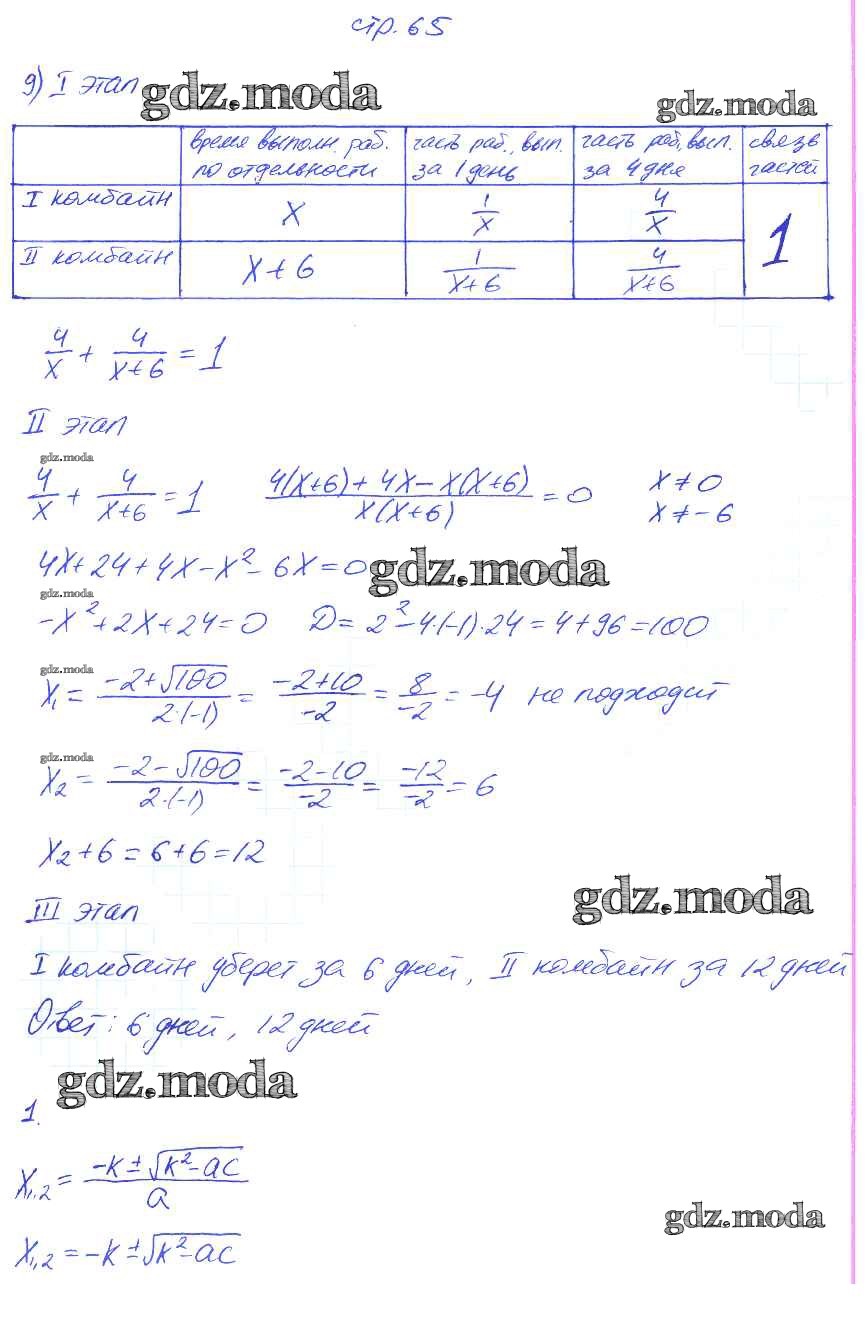 стр. 65
9) I этап gdz.moda gdz.moda
время выполн. раб. по отдельности | часть раб., вып. за 1 день | часть раб., вып. за 4 дня | связь частей
I комбайн | x | 1/x | 4/x | 1
II комбайн | x+6 | 1/(x+6) | 4/(x+6)
4/x + 4/(x+6) = 1
II этап
gdz.moda
4/x + 4/(x+6) = 1   (4(x+6)+4x-x(x+6))/(x(x+6)) = 0   x≠0
x≠-6
4x+24+4x-x²-6x=0 gdz.moda
gdz.moda
-x²+2x+24=0   D=2²-4·(-1)·24=4+96=100
gdz.moda
x₁ = (-2+√100)/(2·(-1)) = (-2+10)/-2 = 8/-2 = -4 не подходит
gdz.moda
x₂ = (-2-√100)/(2·(-1)) = (-2-10)/-2 = -12/-2 = 6
x₂+6=6+6=12
gdz.moda
III этап
I комбайн уберет за 6 дней, II комбайн за 12 дней
Ответ: 6 дней, 12 дней
gdz.moda
1.
x₁,₂ = (-k±√(k²-ac))/a
gdz.moda
x₁,₂ = -k±√(k²-ac)